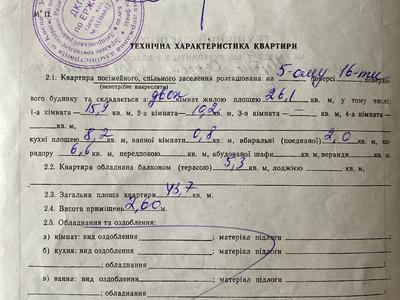 М. П.
ТЕХНІЧНА ХАРАКТЕРИСТИКА КВАРТИРИ
2.1. Квартира посімейного, спільного заселення розташована на 5-ому поверсі 16-ти поверхо-
(непотрібне викреслити)
вого будинку та складається з двох кімнат жилою площею 26,1 кв. м, у тому числі,
1-а кімната — 15,9 кв. м, 2-а кімната — 10,2 кв. м, 3-я кімната — — кв. м, 4-а кімната —
кв. м,
кухні площею 8,2 кв. м, ванної кімнати 0,8 кв. м, вбиральні (поєднаної) 2,0 кв. м, ко-
ридору 6,6 кв. м, передпокою кв. м, вбудованої шафи кв. м, веранди кв. м.
2.2. Квартира обладнана балконом (терасою) 5,3 кв. м, лоджією кв. м.
2.3. Загальна площа квартири 43,7 кв. м.
2.4. Висота приміщень 2,60 м.
2.5. Обладнання та оздоблення:
а) кімнат: вид оздоблення ; матеріал підлоги
б) кухня: вид оздоблення ; матеріал підлоги
; обладнання
в) ванна: вид оздоблення ; матеріал підлоги
; обладнання